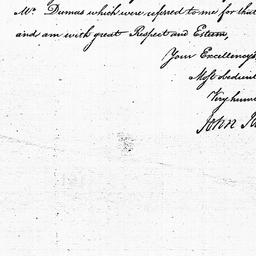 Mr. Dumas which were referred to me for that
and am with great Respect and Esteem,
Your Excellency's
Most obedient
Very humb
John